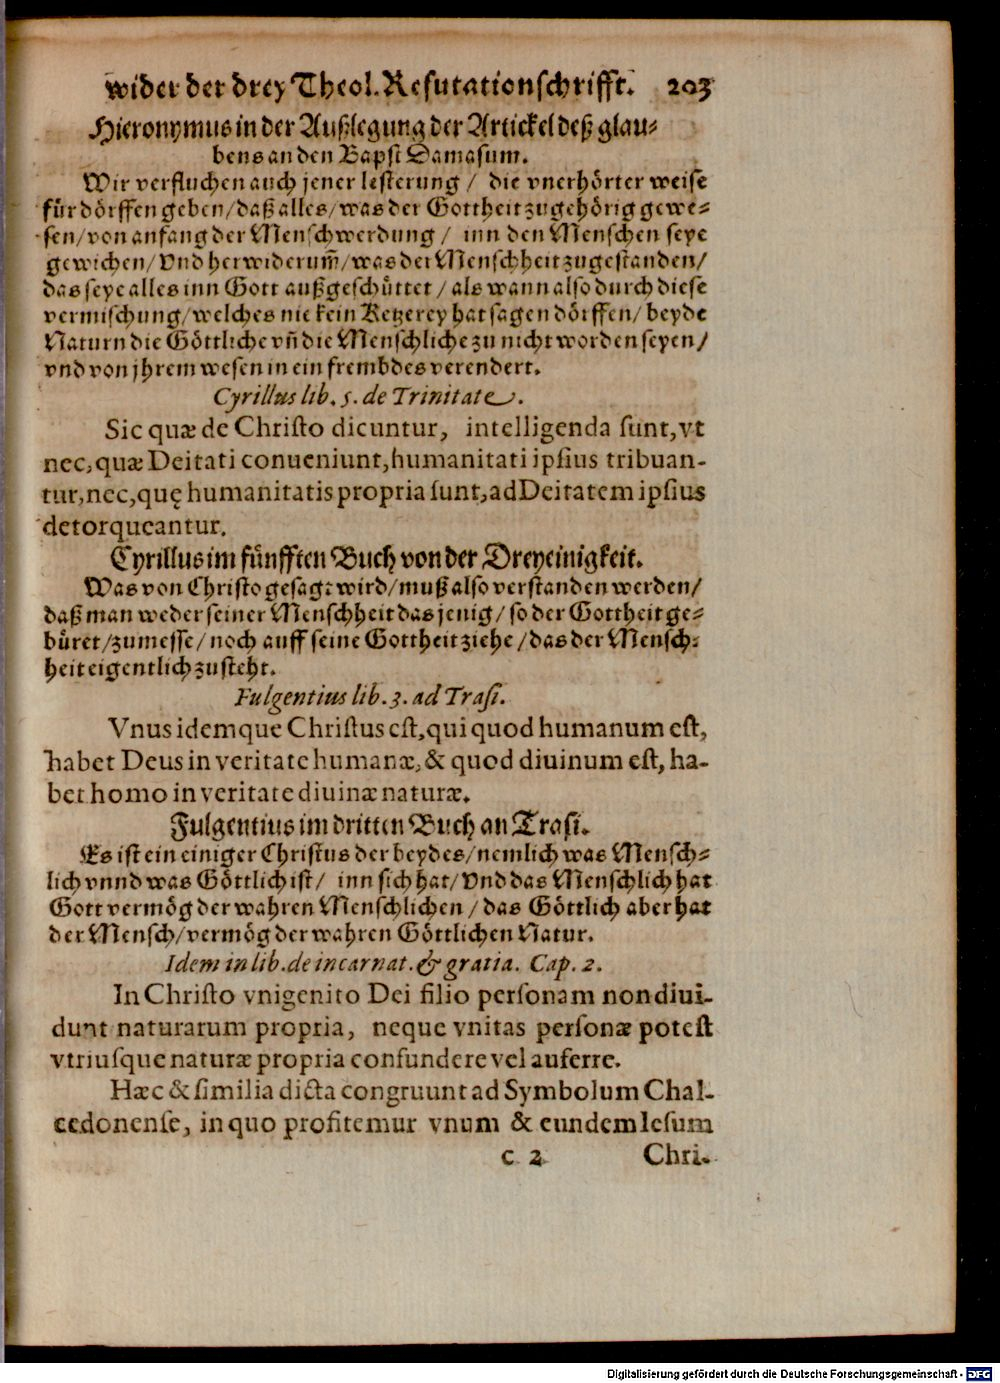 wider der drey Theol. Refutationschrifft. 203
Hieronymus in der Außlegung der Artickel deß glau-
bens an den Bapst Damasum.
Wir verfluchen auch jener lesterung / die vnerhörter weise
für dörffen geben/daß alles/was der Gottheit zugehörig gewe-
sen/von anfang der Menschwerdung / inn den Menschen seye
gewichen/Vnd herwiderum̃/was der Menschheit zugestanden/
das seye alles inn Gott außgeschüttet / als wann also durch diese
vermischung/welches nie kein Ketzerey hat sagen dörffen/ beyde
Naturn die Göttliche vñ die Menschliche zu nicht worden seyen/
vnd von jhrem wesen in ein frembdes verendert.
Cyrillus lib. 5. de Trinitate.
Sic quæ de Christo dicuntur, intelligenda sunt, vt
nec, quæ Deitati conueniunt, humanitati ipsius tribuan-
tur, nec, quę humanitatis propria sunt, ad Deitatem ipsius
detorqueantur.
Cyrillus im fünfften Buch von der Dreyeinigkeit.
Was von Christo gesagt wird/muß also verstanden werden/
daß man weder seiner Menschheit das jenig/ so der Gottheit ge-
büret/zumesse/ noch auff seine Gottheit ziehe /das der Mensch-
heit eigentlich zusteht.
Fulgentius lib. 3. ad Trasi.
Vnus idemque Christus est, qui quod humanum est,
habet Deus in veritate humanæ, & quod diuinum est, ha-
bet homo in veritate diuinæ naturæ.
Fulgentius im dritten Buch an Trasi.
Es ist ein einiger Christus der beydes/nemlich was Mensch-
lich vnnd was Göttlich ist/ inn sich hat/ Vnd das Menschlich hat
Gott vermög der wahren Menschlichen / das Göttlich aber hat
der Mensch/vermög der wahren Göttlichen Natur.
Idem in lib. de incarnat. & gratia. Cap. 2.
In Christo vnigenito Dei filio personam non diui-
dunt naturarum propria, neque vnitas personæ potest
vtriusque naturæ propria confundere vel auferre.
Hæc & similia dicta congruunt ad Symbolum Chal-
cedonense, in quo profitemur vnum & eundem Iesum
c 2 Chri-
Digitalisierung gefördert durch die Deutsche Forschungsgemeinschaft - DFG